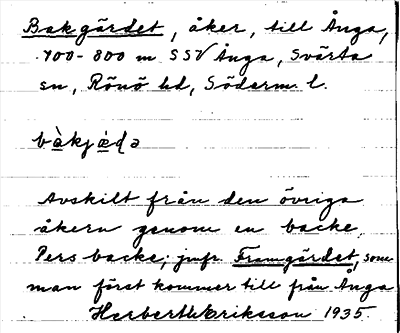 Bakgärdet, åker, till Ånga,
700-800 m SSV Ånga, Svärta
sn, Rönö hd, Söderm. l.
bàkjæ̀ḍə
Avskilt från den övriga
åkern genom en backe,
Pers backe; jmfr. Framgärdet, som
man först kommer till från Ånga
Herbert W Eriksson 1935.